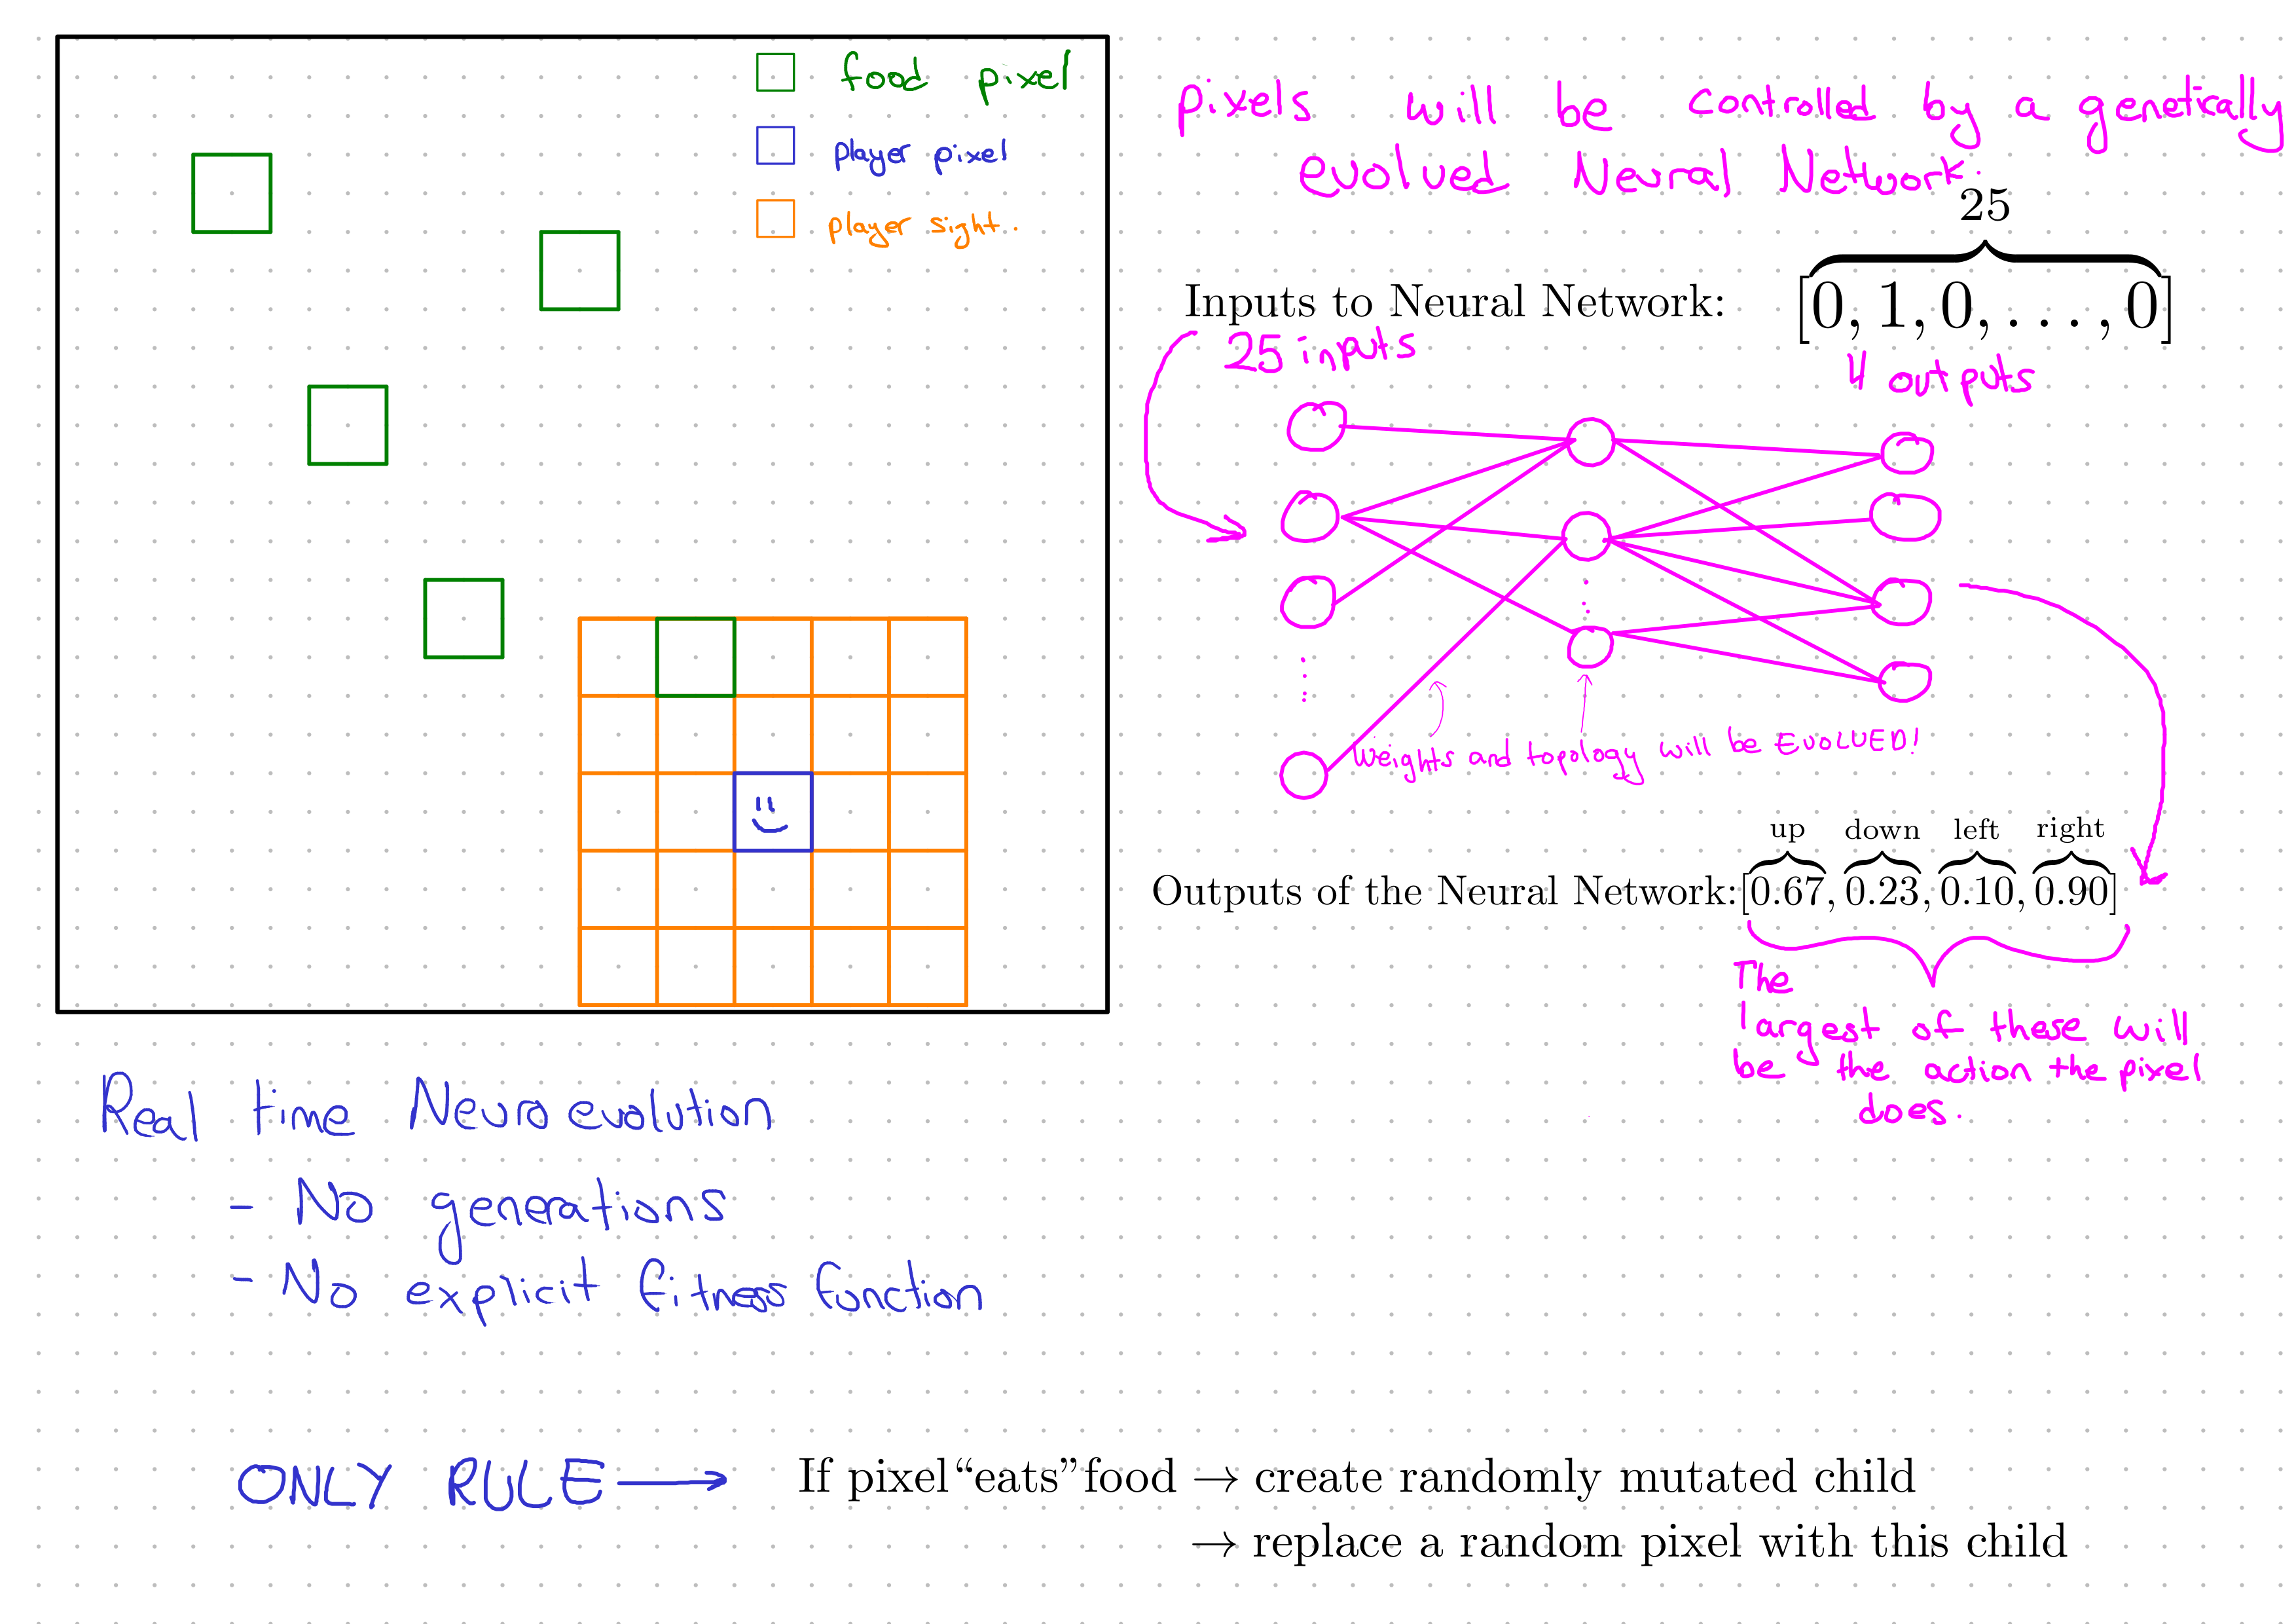 food pixel
player pixel
player sight.
pixels will be controlled by a genetically
evolved Neural Network.
25
Inputs to Neural Network: [0, 1, 0, . . . , 0]
25 inputs
4 outputs
Weights and topology will be EVOLVED!
up down left right
Outputs of the Neural Network:[0.67, 0.23, 0.10, 0.90]
The
largest of these will
be the action the pixel
does.
Real time Neuroevolution
- No generations
- No explicit fitness function
ONLY RULE → If pixel “eats” food → create randomly mutated child
→ replace a random pixel with this child